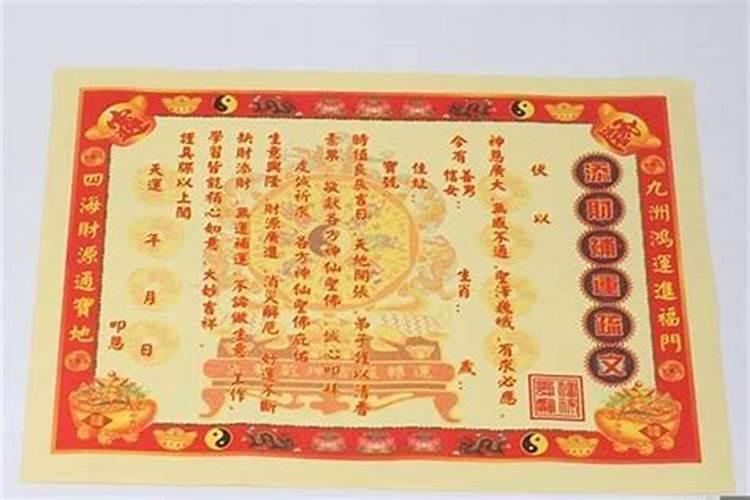 九洲鴻運進福門
添財補運疏文
伏以
神恩廣大 無感不通 聖澤巍峨 有求必應
今有善男信女： 生肖： 歲：
住址：
寶號
時值良辰吉日 天地開張 弟子謹以清香
素果 敬獻各方神仙聖佛 誠心叩拜
虔誠祈求 各方神仙聖佛庇佑
生意興隆 財源廣進 消災解厄 好運不斷
缺財添財 無運補運 不論做生意、工作、
學習皆能稱心如意 大妙吉祥
謹具疏以上聞
天運 年 月 日
叩恩
四海財源通寶地